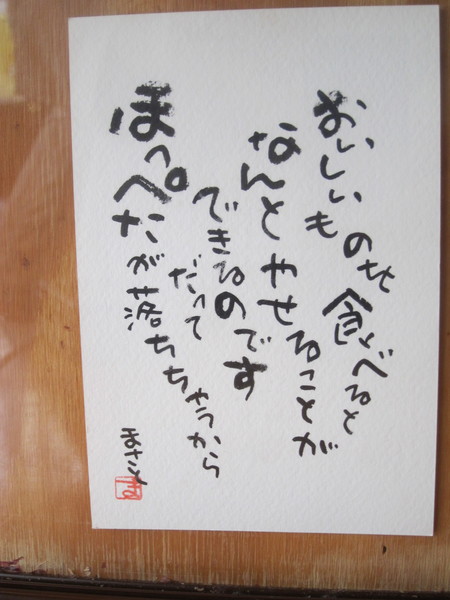 おいしいものを食べると
なんとやせることが
できるのです
だって
ほっぺたが落ちちゃうから
まさと
ま